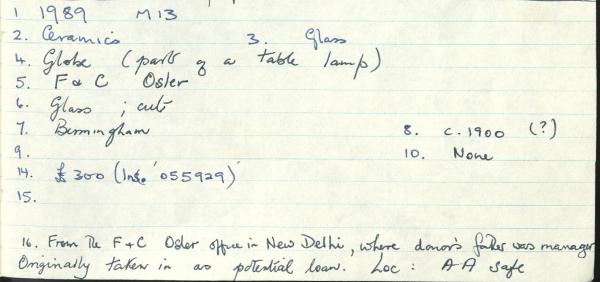 1 1989 M13
2. Ceramics 3. Glass
4. Globe (part of a table lamp)
5. F & C Osler
6. Glass ; cut
7. Birmingham 8. c. 1900 (?)
9. 10. None
14. £300 (Ins. '055929)'
15.
16. From the F + C Osler office in New Delhi, where donor's father was manager
Originally taken in as potential loan. Loc : AA safe